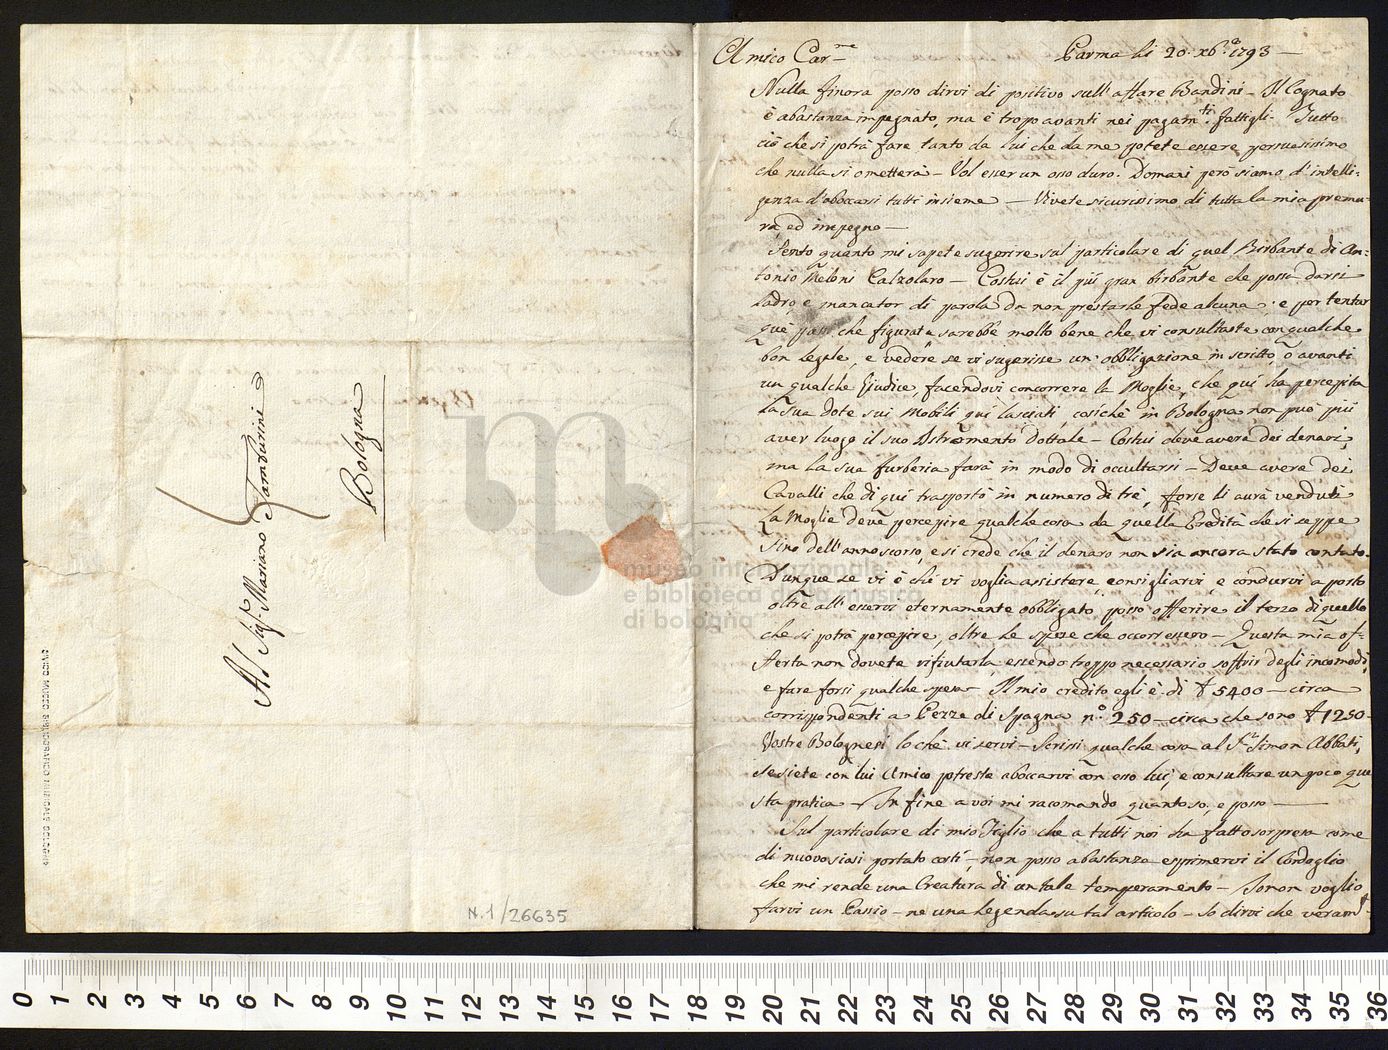 Al Sig.r Mariano Tamburini
Bologna
CIVICO MUSEO BIBLIOGRAFICO MUSICALE BOLOGNA
N.1/26635
museo internazionale
e biblioteca della musica
di bologna
Amico Car.mo Parma li 20. Xb.e 1793 —
Nulla finora posso dirvi di positivo sull'affare Bandini – Il Cognato
è abastanza impegnato, ma è tropo avanti nei pagam.ti fattigli – Tutto
ciò che si potrà fare tanto da lui che da me potete essere persuasissimo
che nulla si ometterà – Vol esser un osso duro. Domani però siamo d'intelli-
genza d'aboccarsi tutti insieme — Vivete sicurissimo di tutta la mia premu-
ra, ed impegno —
Sento quanto mi sapete sugerire sul particolare di quel Birbante di An-
tonio Meloni Calzolaro – Costui è il più gran birbante che possa darsi
ladro, e mancator di parola da non prestarle fede alcuna; e per tentar
che figurata sarebbe molto bene che vi consultaste con qualche
bon legale, e vedere se vi sugerisse un'obbligazione in scritto, o avanti
un qualche Giudice, facendovi concorrere la Moglie, che quì ha percepita
la sua dote sui Mobili quì lasciati, cosichè in Bologna non può più
aver luogo il suo Istromento dottale – Costui deve avere dei denari,
ma la sua furberia farà in modo di occultarsi – Deve avere dei
Cavalli che di quì trasportò in numero di trè, forse li avrà venduti
La Moglie deve percepire qualche cosa da quella Eredità che si seppe
sino dell'anno scorso, e si crede che il denaro non sia ancora stato contato.
Dunque se vi è chi vi voglia assistere, consigliarvi, e condurvi a porto
oltre all'esservi eternamente obbligato, posso offerire il terzo di quello
che si potrà percepire, oltre le spese che occorressero – Questa mia of-
ferta non dovete rifiutarla, essendo troppo necessario soffrir degli incomodi,
e fare forsi qualche spesa – Il mio credito egli è di 5400 – circa
corrispondenti a Pezze di Spagna n.o 250 – circa che sono 1250 –
Vostre Bolognesi lochè vi servi – Scrissi qualche cosa al S.r Simon Abbati,
se siete con lui Amico potreste aboccarvi con esso lui, e consultare un poco que
sta pratica – In fine a voi mi racomando quanto so, e posso —
Sul particolare di mio Figlio che a tutti noi ha fatto sorpresa come
di nuovo siasi portato costì – non posso abastanza esprimervi il Cordoglio
che mi rende una Creatura di un tale temperamento – Io non voglio
farvi un Passio – ne una Legenda su tal articolo – Io dirvi che veram.te
0 1 2 3 4 5 6 7 8 9 10 11 12 13 14 15 16 17 18 19 20 21 22 23 24 25 26 27 28 29 30 31 32 33 34 35 36